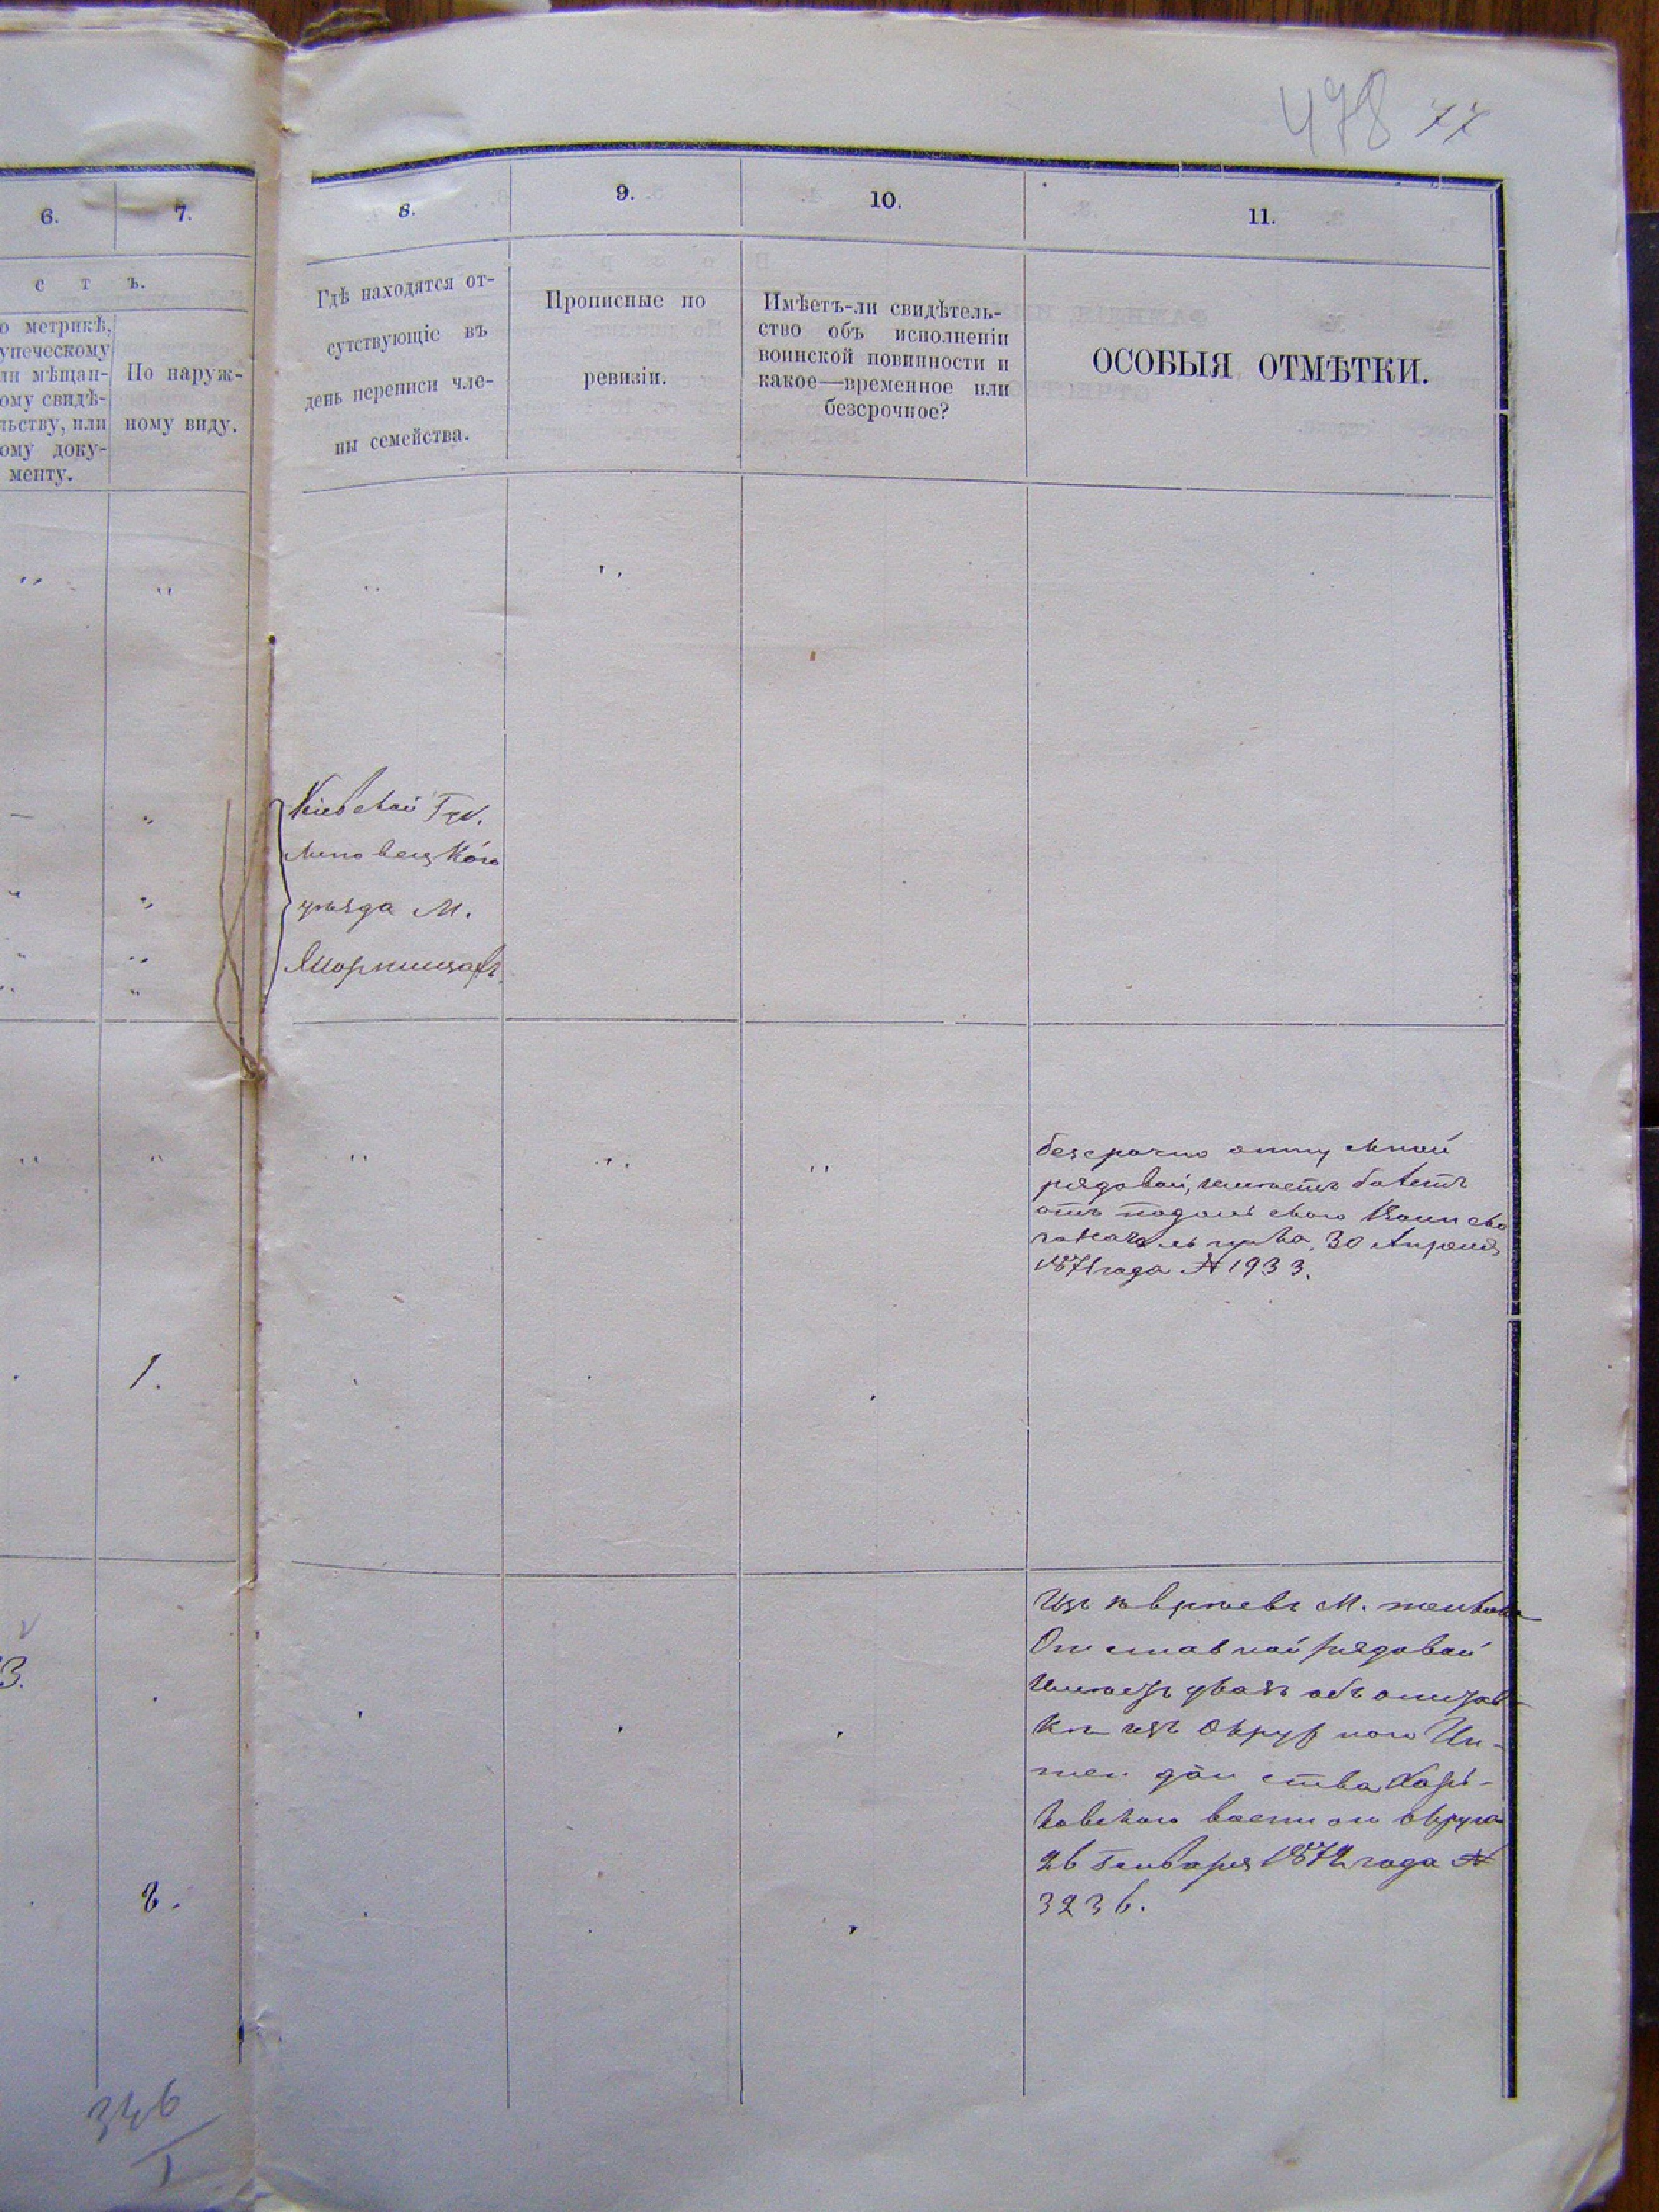 478 77
6. 7. 8. 9. 10. 11.
с т ъ.
о метрикѣ,
упеческому
ли мѣщан-
ому свидѣ-
льству, или
ому доку-
менту.
По наруж-
ному виду.
Гдѣ находятся от-
сутствующіе въ
день переписи чле-
ны семейства.
Прописные по
ревизіи.
Имѣетъ-ли свидѣтель-
ство объ исполненіи
воинской повинности и
какое—временное или
безсрочное?
ОСОБЫЯ ОТМѢТКИ.
Кіевской Губ.
Липовецкого
уѣзда М.
безсрочно отпускной
рядовой, имѣетъ билетъ
отъ Подольскаго Воинска
го Начальника. 30 Апреля
1871 года № 1933.
1.
Изъ евреевъ М.
Отставной рядовой
имѣетъ указъ объ отстав
кѣ изъ Окружного Ин-
тендантства Харь-
ковского военного округа
26 Генваря 1872 года №
3236.
3.
8.
346
1